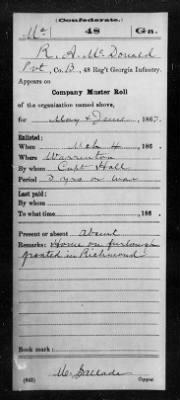 Confederate.
Mc 48 Ga.
R. A. McDonald
Pvt, Co. B, 48 Reg't Georgia Infantry.
Appears on
Company Muster Roll
of the organization named above,
for May & June, 1863.
Enlisted:
When Mch 4, 186
Where Warrenton
By whom Capt Hall
Period 3 yrs or war
Last paid:
By whom
To what time , 186 .
Present or absent Absent
Remarks: Home on furlough
granted in Richmond
Book mark:
(642) Copyist.